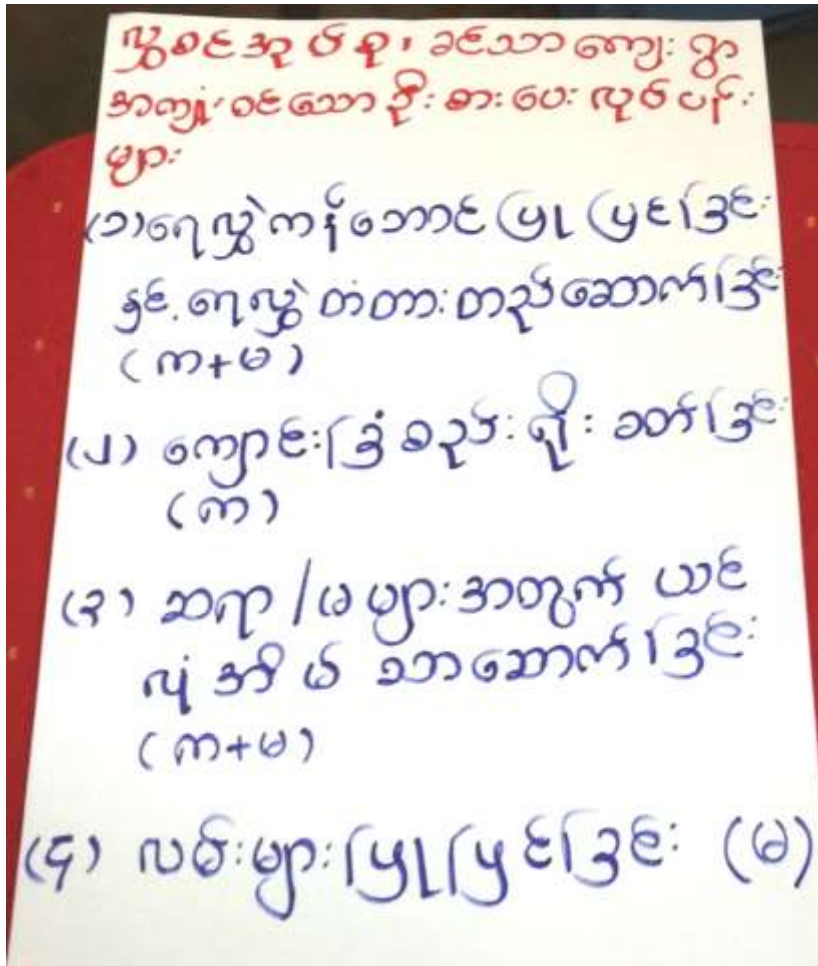 လွှစင်အုပ်စု၊ ခင်သာကျေးရွာ
အကျုံးဝင်သော ဦးစားပေး လုပ်ငန်း
များ
(၁) ရေလွှဲကန်ဘောင် ပြုပြင်ခြင်း
နှင့် ရေလွှဲ တံတားတည်ဆောက်ခြင်း
(က+မ)
(၂) ကျောင်းခြံစည်းရိုး ခတ်ခြင်း
(က)
(၃) ဆရာ/မ များအတွက် ယင်
လုံအိမ် သာဆောက်ခြင်း
(က+မ)
(၄) လမ်းများပြုပြင်ခြင်း (မ)